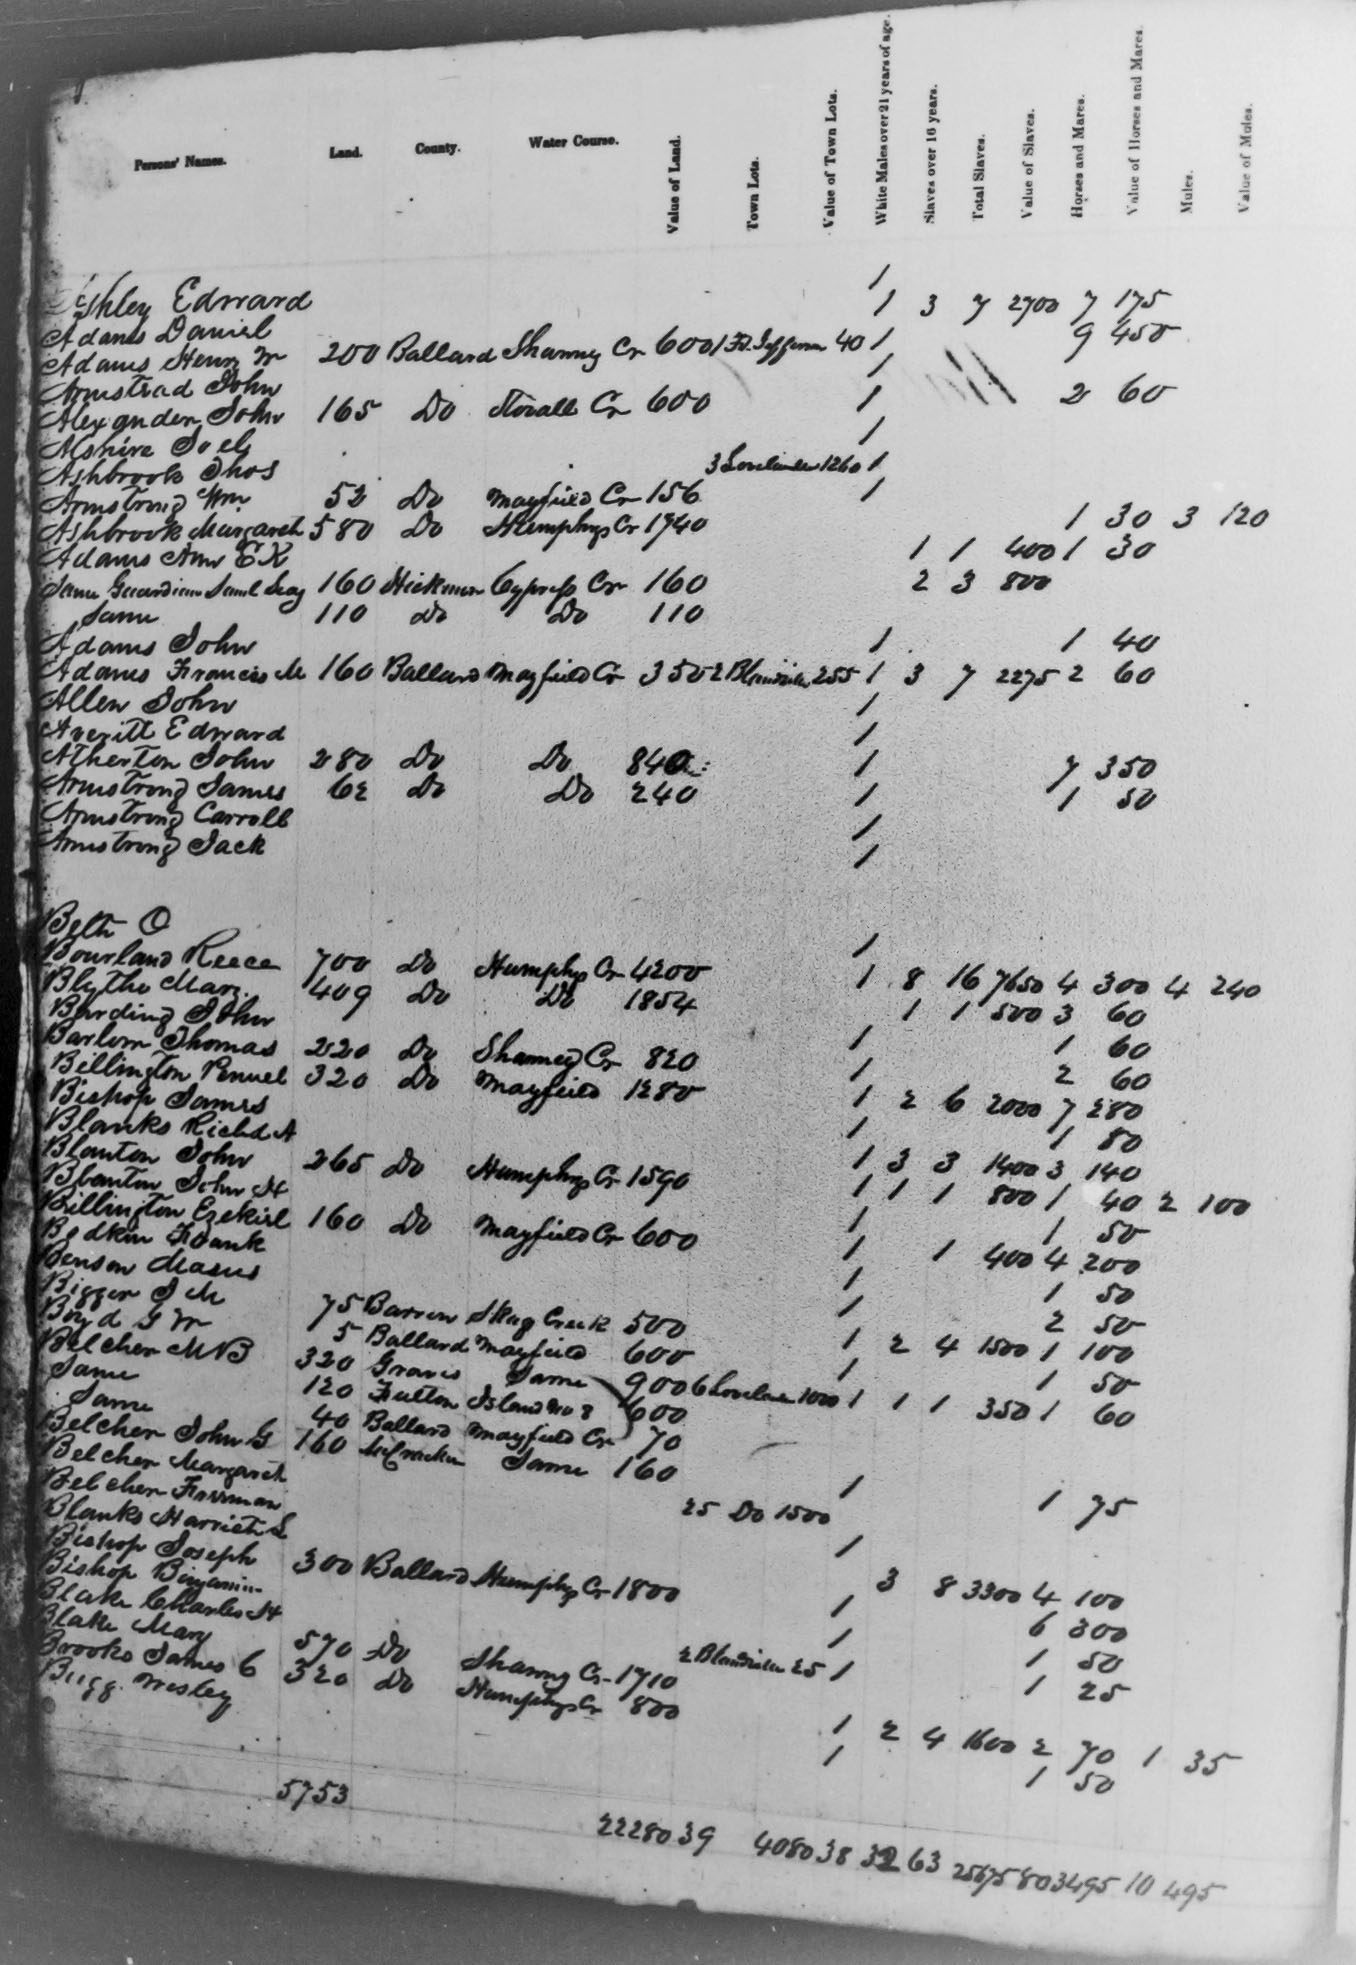 Persons' Names. Land. County. Water Course. Value of Land. Town Lots. Value of Town Lots. White Males over 21 years of age. Slaves over 16 years. Total Slaves. Value of Slaves. Horses and Mares. Value of Horses and Mares. Mules. Value of Mules.
Ashley Edward 1
Adams Daniel 1 3 7 2700 7 175
Adams Henry W 200 Ballard Shawny Cr 600 1 Ft. Jefferson 40 1 9 450
Armstrad John 1
Alexander John 165 Do Stovall Cr 600 1 2 60
Alshire Joel 1
Ashbrook Thos 3 Lovelaceville 1260 1
Armstrong Wm 52 Do Mayfield Cr 156 1
Ashbrook Margaret 580 Do Humphys Cr 1740 1 30 3 120
Adams Ann E K 1 1 400 1 30
Same Guardian Saml Seay 160 Hickman Cypress Cr 160 2 3 800
Same 110 Do Do 110
Adams John 1 1 40
Adams Francis M 160 Ballard Mayfield Cr 350 2 Blandville 255 1 3 7 2275 2 60
Allen John 1
Averitt Edward 1
Atherton John 280 Do Do 840 1 7 350
Armstrong James 62 Do Do 240 1 1 50
Armstrong Carroll 1
Armstrong Jack 1
Belt O 1
Bourland Reece 700 Do Humphys Cr 4200 1 8 16 7650 4 300 4 240
Blythe Mary 409 Do Do 1854 1 1 500 3 60
Barding John 1 1 60
Barlow Thomas 220 Do Shawney Cr 820 1 2 60
Billington Penuel 320 Do Mayfield 1280 1 2 6 2000 7 280
Bishop James 1 1 80
Blanks Richd A 1 3 3 1400 3 140
Blanton John 265 Do Humphys Cr 1590 1 1 1 800 1 40 2 100
Blanton John H 1 1 50
Billington Ezekiel 160 Do Mayfield Cr 600 1 1 400 4 200
Bodkin Frank 1 1 50
Benson 1 2 50
Bigger J M 1 2 4 1500 1 100
Boyd G W 75 Barren Skag Creek 500 1 1 50
Belcher M B 5 Ballard Mayfield 600 6 Lovelace 1000 1 1 1 350 1 60
Same 320 Graves Same 900
Same 120 Fulton Island No 8 600
Belcher John G 40 Ballard Mayfield Cr 70 1 1 75
Belcher Margaret 160 McCracken Same 160
Belcher 25 Do 1500 1
Blanks Harriet L 3 8 3300 4 100
Bishop Joseph 300 Ballard Humphys Cr 1800 1 6 300
Bishop Benjamin 1 1 50
Blake Charles H 2 Blandville 25 1 1 25
Blake Mary 570 Do Shawny Cr 1710
Brooks James C 320 Do Humphys Cr 800 1 2 4 1600 2 70 1 35
Bugg Wesley 1 1 50
5753 22280 39 4080 38 32 63 25675 80 3495 10 495